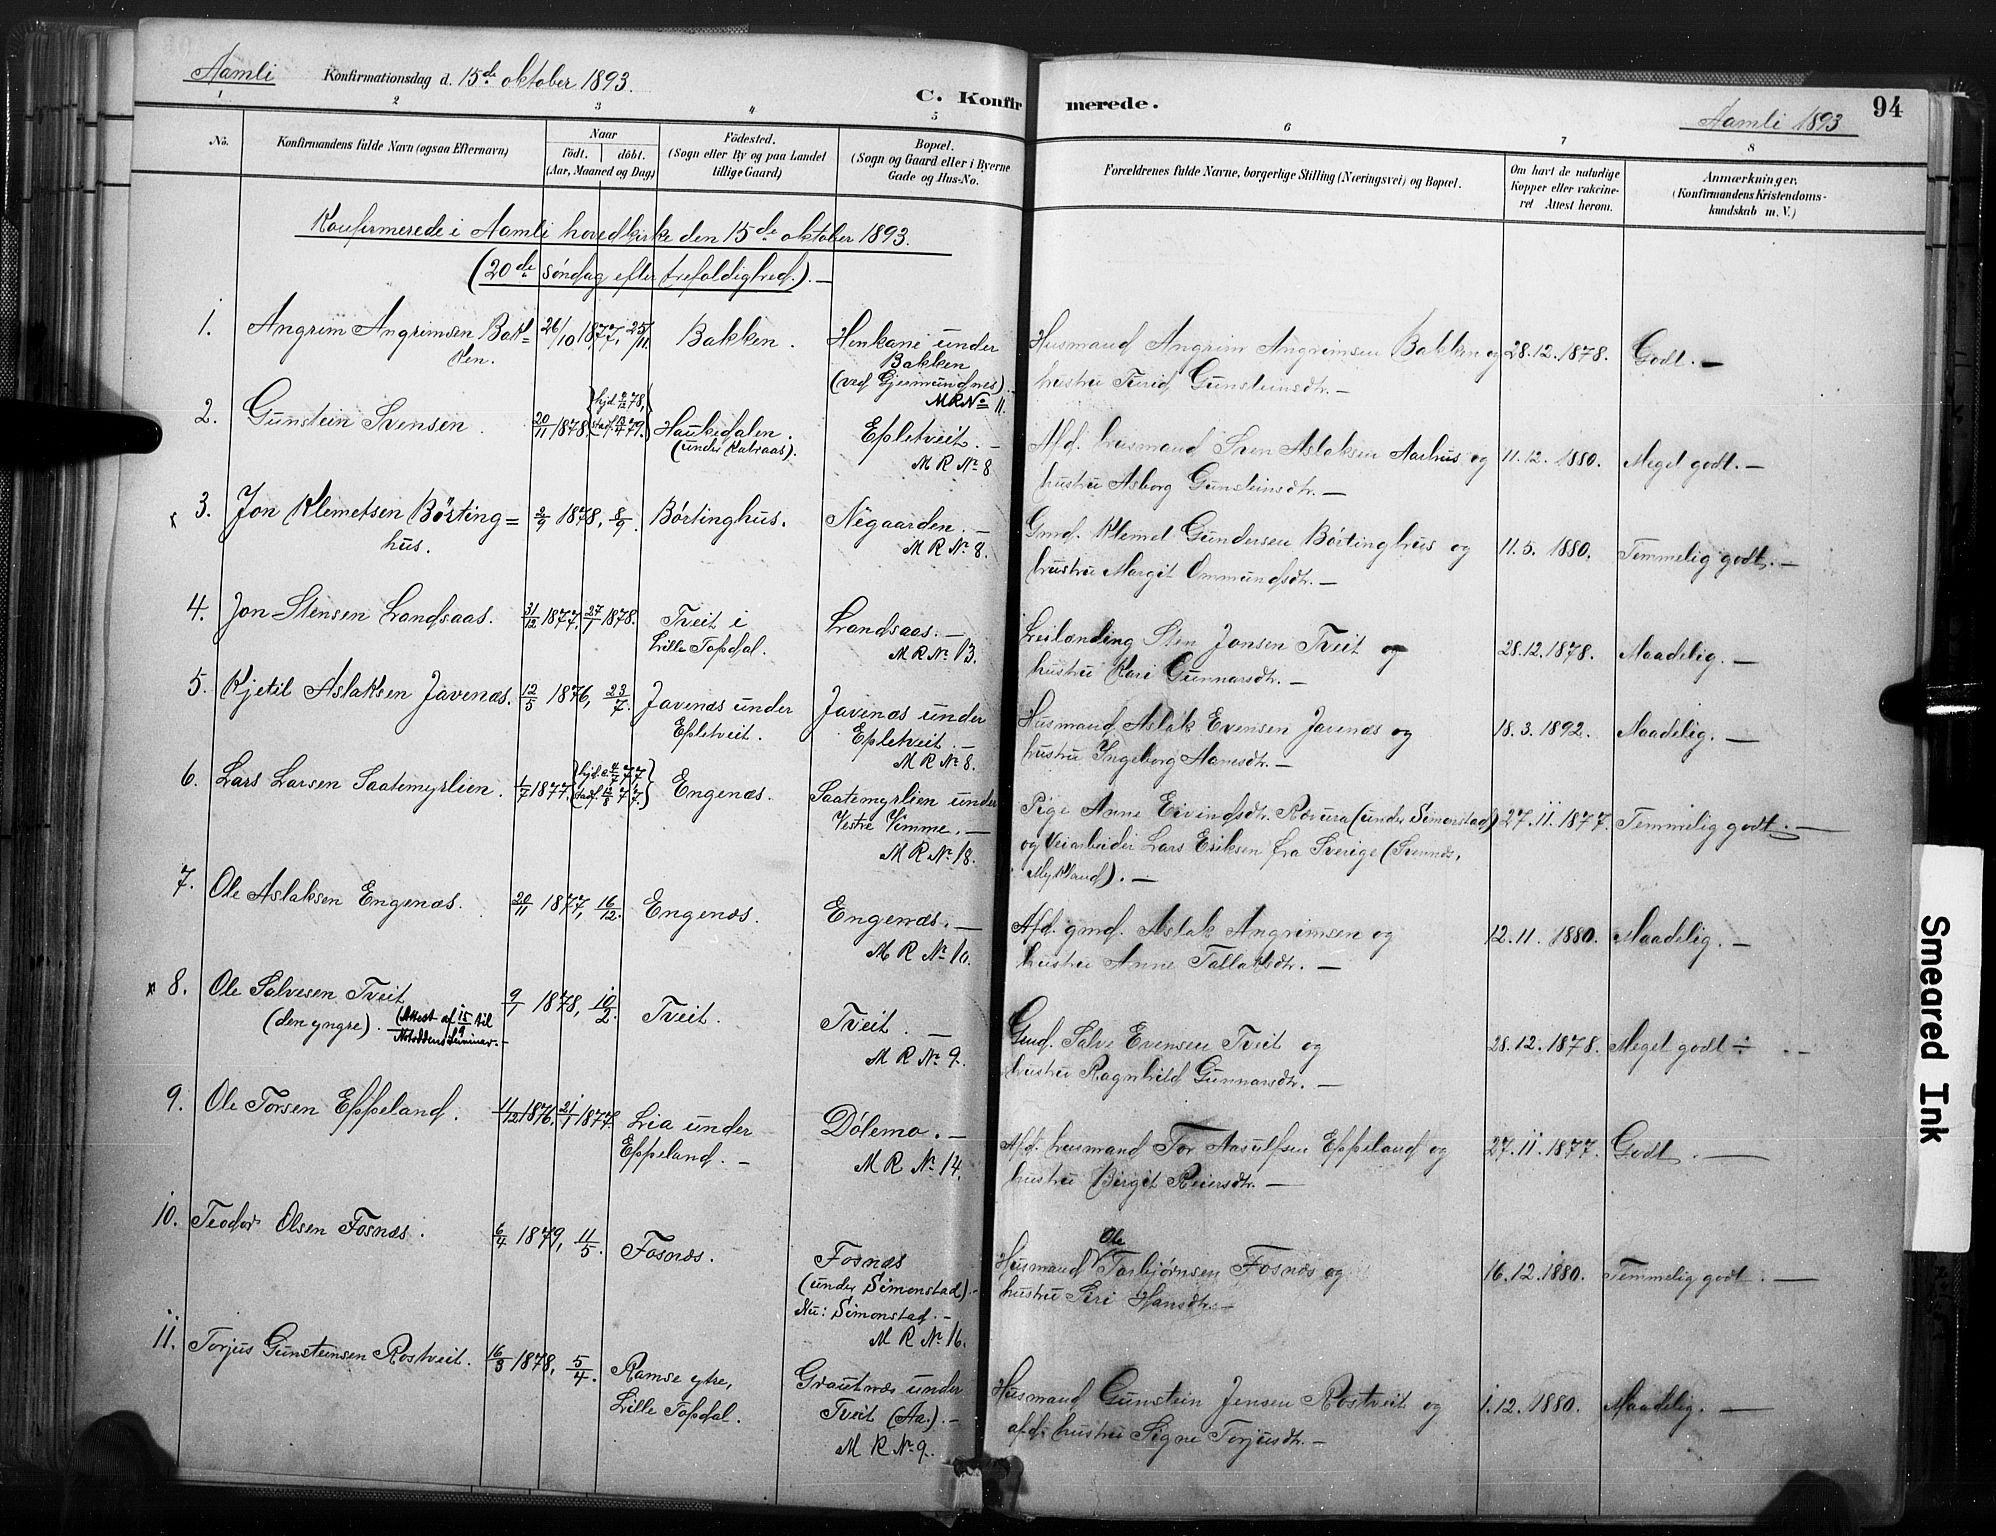 Aamli Konfirmationsdag d. 15de oktober 1893.
C. Konfirmerede.
Aamli 1893
94
1 2 3 4 5 6 7 8
No.
Konfirmandens fulde Navn (ogsaa Efternavn)
Naar
Födt. döbt.
(Aar, Maaned og Dag)
Födested.
(Sogn eller By og paa Landet
tillige Gaard)
Bopæl.
(Sogn og Gaard eller i Byerne
Gade og Hus-No.
Forældrenes fulde Navne, borgerlige Stilling (Næringsvei) og Bopæl.
Om havt de naturlige
Kopper eller vakcine-
ret Attest herom.
Anmærkninger.
(Konfirmandens Kristendoms-
kundskab m. V.)
Konfirmerede i Aamli hovedkirke den 15de oktober 1893.
(20de søndag efter trefoldighed.) —
1. Angrim Angrimsen Bak= 26/10 1877, 25/11 Bakken. Henkane under
ken.
Bakken
(ved Gjermundnes). —
M R No 11.
Husmand Angrim Angrimsen Bakken og 28.12.1878. Godt. —
hustru Turid Gunsteinsdtr. —
2. Gunstein Svensen. 20/11 1878. {hjd. 2/12 78, stadf. 14/4 79.} Haukedalen. Epletveit. —
(under Katraas).
M R No 8
Afd. husmand Sven Aslaksen Aarhus og 11.12. 1880. Meget godt. —
hustru Asborg Gunsteinsdtr. —
3. Jon Klemetsen Børting= 2/9 1878, 8/9. Børtinghus. Negaarden. —
hus.
M R No 8.
Gmd. Klemet Gundersen Børtinghus og 11.5. 1880. Temmelig godt. —
hustru Margit Ommundsdtr. —
4. Jon Stensen Landsaas. 31/12 1877, 27/1 1878. Tveit i Landsaas. —
Lille Topdal.
M R No 13.
Leilænding Sten Jonsen Tveit og 28.12.1878. Maadelig. —
hustru Kari Gunnarsdtr. —
5. Kjetil Aslaksen Javenæs. 12/5 1876, 23/7. Javenæs under Javenæs under
Epletveit. Epletveit. —
M R No 8.
Husmand Aslak Evensen Javenæs og 18.3. 1892. Maadelig. —
hustru Ingeborg Hansdtr. —
6. Lars Larsen Saatemyrlien. 1/7 1877. {hjd. 4/7 77 stadf. 12/8 77.} Engenæs. Saatemyrlien under
Vestre Vimme. —
M R No 18.
Pige Anne Eivindsdtr. Røvura (under Simonstad) 27.11.1877. Temmelig godt. —
og Veiarbeider Lars Eriksen fra Sverige (Svennes,
Mykland). —
7. Ole Aslaksen Engenæs. 20/11 1877, 16/12. Engenæs. Engenæs. —
M R No 10.
Afd. gmd. Aslak Angrimsen og 12.11. 1880. Maadelig. —
hustru Anne Tallaksdtr. —
8. Ole Salvesen Tveit 9/1 1878, 10/2. Tveit. Tveit. —
(den yngre). (Attest af 15/9 til
Notoddens Seminar. —
M R No 9.
Gmd. Salve Evensen Tveit og 28.12.1878. Meget godt ÷
hustru Ragnhild Gunnarsdtr. —
9. Ole Torsen Eppeland. 11/12 1876, 21/1 1877. Lia under Dølemo. —
Eppeland. —
M R No 14.
Afd. husmand Tor Aasulfsen Eppeland og 27.11.1877. Godt. —
hustru Birgit Reiersdtr. —
10. Teodor Olsen Fosnæs. 6/4 1879, 11/5. Fosnæs. Fosnæs
(under Simonstad). —
Nu: Simonstad. —
M R No 16.
Husmand Ole Torbjørnsen Fosnæs og 16.12.1880. Temmelig godt. —
hustru Siri Hansdtr. —
11. Torjus Gunsteinsen Rostveit. 16/3 1878, 5/4. Ramse ytre, Grautnæs under
Lille Topdal. Tveit (Aa.). —
M R No 9.
Husmand Gunstein Jensen Rostveit og 1.12.1880. Maadelig. —
afd. hustru Signe Torjusdtr. —
Smeared Ink